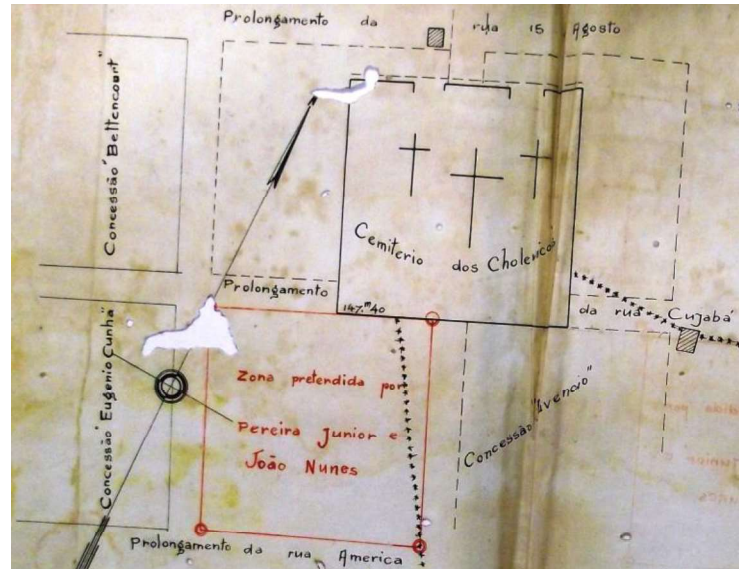 Prolongamento da rua 15 Agosto
Concessão "Bettencourt"
Cemiterio dos Cholericos
Prolongamento da rua Cujabá
147.m40
Concessão "Eugenio Cunha"
Zona pretendida por
Pereira Junior e
João Nunes
Concessão "Ivencio"
Prolongamento da rua America